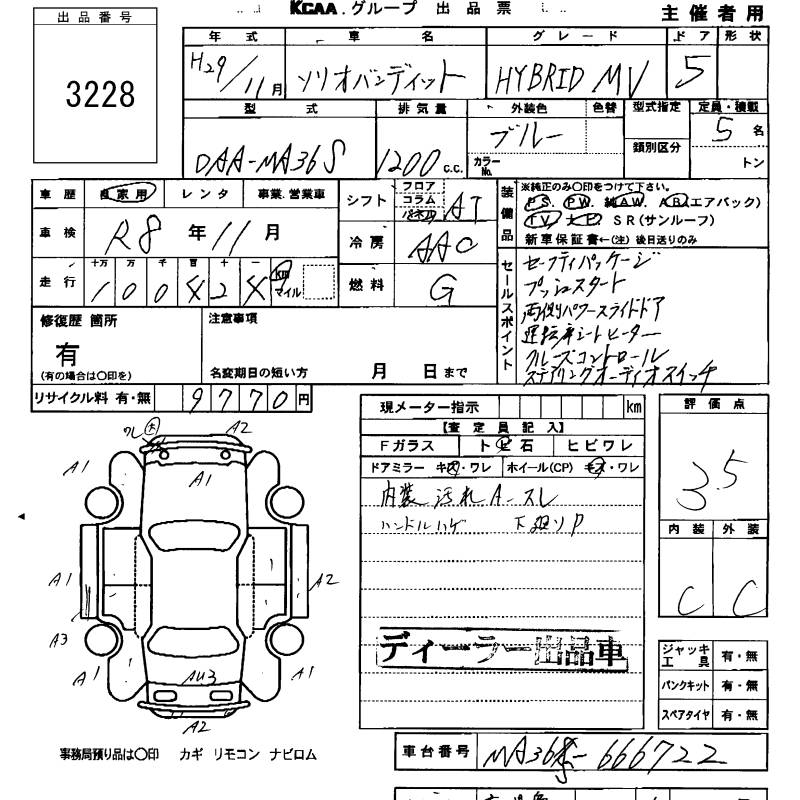 KCAA.グループ 出品票
主催者用
出品番号
3228
年式 車名 グレード ドア 形状
H29/11月 ソリオバンディット HYBRID MV 5
型式 排気量 外装色 色替 型式指定 定員・積載
DAA-MA36S 1200 c.c. ブルー カラーNo. 類別区分 5名
トン
車歴 自家用 レンタ 事業.営業車
車検 R8年11月
走行 十万 万 千 百 十 一
100424 km マイル
シフト フロア コラム パネル AT
冷房 AAC
燃料 G
装備品
※純正のみ○印をつけて下さい。
PS. PW. 純AW. AB(エアバッグ)
TV SR(サンルーフ)
新車保証書←(注)後日送りのみ
セールスポイント
セーフティパッケージ
プッシュスタート
両側パワースライドドア
運転席シートヒーター
クルーズコントロール
ステアリングオーディオスイッチ
修復歴 箇所
有
(有の場合は○印を)
注意事項
名変期日の短い方 月 日まで
リサイクル料 有・無 9770円
現メーター指示 km
【査定員記入】
Fガラス ト石 ヒビワレ
ドアミラー キズ・ワレ ホイール(CP) キズ・ワレ
内装 汚れ A-スレ
ハンドルハゲ 下廻りP
ディーラー出品車
評価点
3.5
内装 外装
C C
ジャッキ工具 有・無
パンクキット 有・無
スペアタイヤ 有・無
ワレ 大 A2
A1 A1
A1 A2
A3
A1 AU3 A1
A2
事務局預り品は○印 カギ リモコン ナビロム
車台番号 MA36S-666722